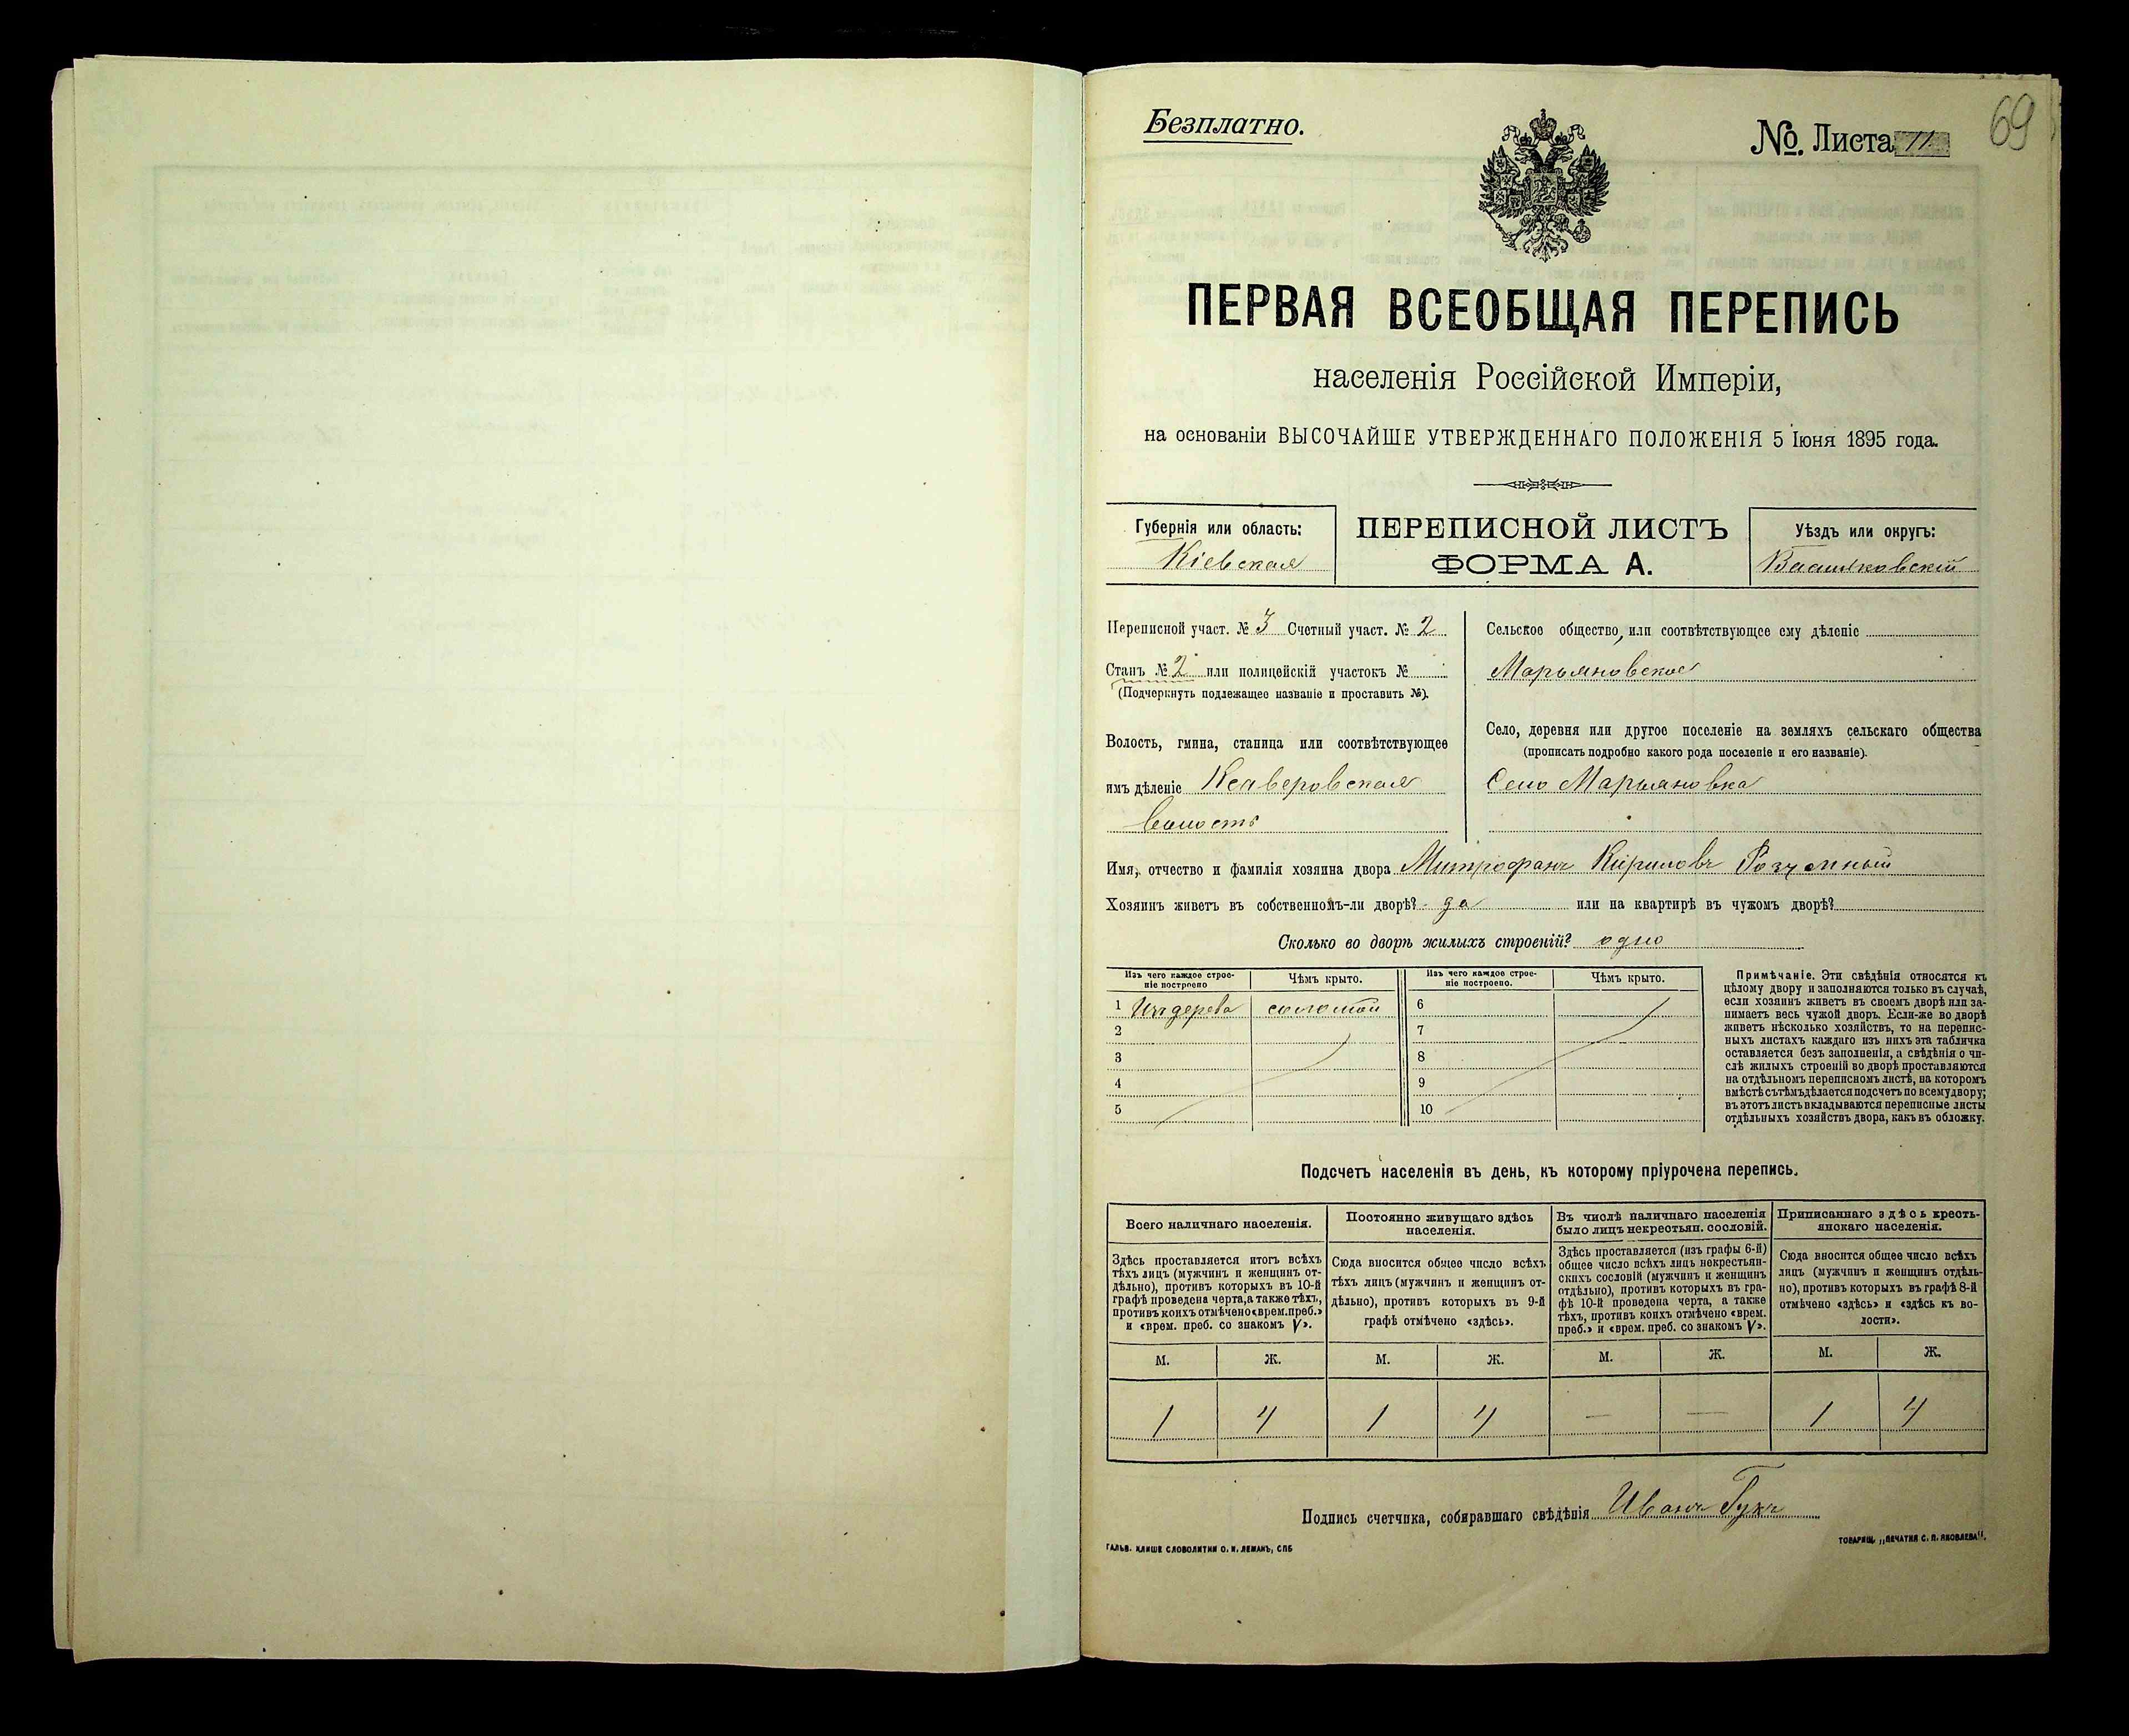 69
Безплатно.
№. Листа 11
ПЕРВАЯ ВСЕОБЩАЯ ПЕРЕПИСЬ
населенія Россійской Имперіи,
на основаніи ВЫСОЧАЙШЕ УТВЕРЖДЕННАГО ПОЛОЖЕНІЯ 5 Іюня 1895 года.
Губернія или область:
Кіевская
ПЕРЕПИСНОЙ ЛИСТЪ
ФОРМА А.
Уѣздъ или округъ:
Васильковскій
Переписной участ. № 3 Счетный участ. № 2
Станъ № 2 или полицейскій участокъ №
(Подчеркнуть подлежащее названіе и проставить №).
Волость, гмина, станица или соотвѣтствующее
имъ дѣленіе Ксаверовская
волость
Сельское общество, или соотвѣтствующее ему дѣленіе
Марьяновское
Село, деревня или другое поселеніе на земляхъ сельскаго общества
(прописать подробно какого рода поселеніе и его названіе).
Село Марьяновка
Имя, отчество и фамилія хозяина двора Митрофанъ Кириловъ Розумный
Хозяинъ живетъ въ собственномъ-ли дворѣ? да или на квартирѣ въ чужомъ дворѣ?
Сколько во дворѣ жилыхъ строеній? одно
Изъ чего каждое строе-
ніе построено
Чѣмъ крыто.
Изъ чего каждое строе-
ніе построено.
Чѣмъ крыто.
1 Изъ дерева соломой 6
2 7
3 8
4 9
5 10
Примѣчаніе. Эти свѣдѣнія относятся къ
цѣлому двору и заполняются только въ случаѣ,
если хозяинъ живетъ въ своемъ дворѣ или за-
нимаетъ весь чужой дворъ. Если-же во дворѣ
живетъ нѣсколько хозяйствъ, то на перепис-
ныхъ листахъ каждаго изъ нихъ эта табличка
оставляется безъ заполненія, а свѣдѣнія о чи-
слѣ жилыхъ строеній во дворѣ проставляются
на отдѣльномъ переписномъ листѣ, на которомъ
вмѣстѣ съ тѣмъ дѣлается подсчетъ по всему двору;
въ этотъ листъ вкладываются переписные листы
отдѣльныхъ хозяйствъ двора, какъ въ обложку.
Подсчетъ населенія въ день, къ которому пріурочена перепись.
Всего наличнаго населенія.
Здѣсь проставляется итогъ всѣхъ
тѣхъ лицъ (мужчинъ и женщинъ от-
дѣльно), противъ которыхъ въ 10-й
графѣ проведена черта, а также тѣхъ,
противъ коихъ отмѣчено «врем. преб.»
и «врем. преб. со знакомъ V».
Постоянно живущаго здѣсь
населенія.
Сюда вносится общее число всѣхъ
тѣхъ лицъ (мужчинъ и женщинъ от-
дѣльно), противъ которыхъ въ 9-й
графѣ отмѣчено «здѣсь».
Въ числѣ наличнаго населенія
было лицъ некрестьян. сословій.
Здѣсь проставляется (изъ графы 6-й)
общее число всѣхъ лицъ некрестьян-
скихъ сословій (мужчинъ и женщинъ
отдѣльно), противъ которыхъ въ гра-
фѣ 10-й проведена черта, а также
тѣхъ, противъ коихъ отмѣчено «врем.
преб.» и «врем. преб. со знакомъ V».
Приписаннаго здѣсь кресть-
янскаго населенія.
Сюда вносится общее число всѣхъ
лицъ (мужчинъ и женщинъ отдѣль-
но), противъ которыхъ въ графѣ 8-й
отмѣчено «здѣсь» и «здѣсь къ во-
лости».
М. Ж. М. Ж. М. Ж. М. Ж.
1 4 1 4 — — 1 4
Подпись счетчика, собиравшаго свѣдѣнія Иванъ Гукъ
ГАЛЬВ. КЛИШЕ СЛОВОЛИТНИ О. И. ЛЕМАНЪ, СПБ
ТОВАРИЩ. „ПЕЧАТНЯ С. П. ЯКОВЛЕВА“.